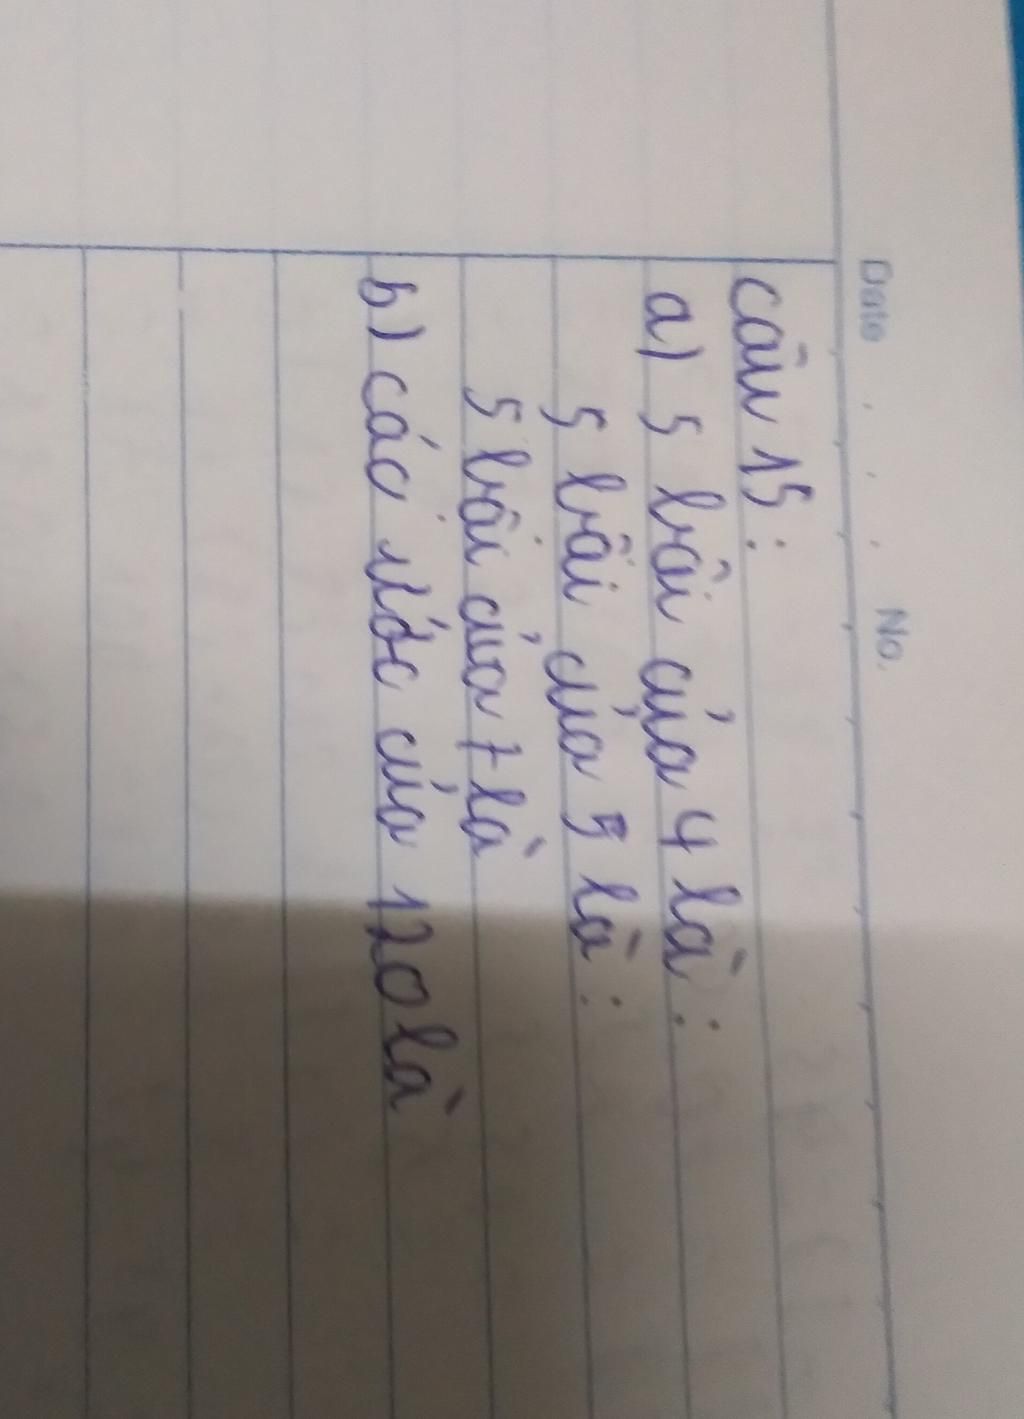 Date No.
câu 15:
a) 5 bội của 4 là:
5 bội của 5 là:
5 bội của 7 là
b) các ước của 120 là